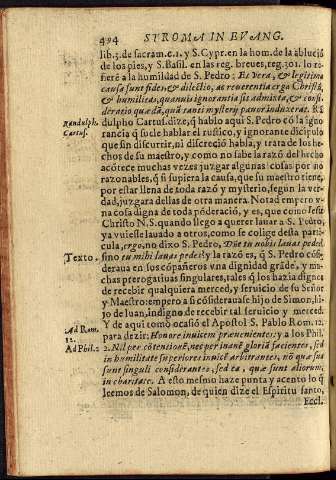 494 STROMA IN EVANG.
lib. 3. de sacram. c. 1. y S. Cypr. en la hom. de la ablució
de los pies, y S. Basil. en las reg. breues, reg. 301. lo re
fiere a la humildad de S. Pedro: Et vera, & legitima
causa sunt fides, & dilectio, ac reuerentia erga Christũ,
& humilitas, quamuis ignorantia sit admixta, & consi
deratio quædã, quã tanti mysterij pauor induxerat. Rã
Randulph. dulpho Cartus. dize, q̃ hablo aqui S. Pedro cõ la igno
Cartus. rancia q̃ suele hablar el rustico, y ignorante dicipulo
que sin discurrir, ni discreció habla, y trata de los he-
chos de su maestro, y como no sabe la razó del hecho
acótece muchas vezes juzgar algunas cosas por no
razonables, q̃ si supiera la causa, que su maestro tiene,
por estar llena de toda razó y mysterio, segun la ver-
dad, juzgara dellas de otra manera. Notad empero v-
na cosa digna de toda põderació, y es, que como fuesse
Christo N. S. quando llego a querer lauar a S. Pedro,
ya vuiesse lauado a otros, como se colige desta parti
cula, ergo, no dixo S. Pedro, Dñe tu nobis lauas pedes,
Texto. sino tu mihi lauas pedes? y la razó es, q̃ S. Pedro có
sideraua en sus cópañeros vna dignidad grãde, y mu-
chas prerogatiuas singulares, tales q̃ los hazia dignos
de recebir qualquiera merced, y seruicio de su Señor
y Maestro: empero a si cósiderauase hijo de Simon, hi-
jo de Iuan, indigno de recebir tal seruicio y merced.
Ad Rom. Y de aqui tomò ocasió el Apostol S. Pablo Rom. 12.
12. para dezir: Honore inuicem præuenientes: y a los Phil.
Ad Phil. 2 2. Nil per cõtentionẽ, nec per inanẽ gloriã facientes, sed
in humilitate superiores inuicẽ arbitrantes, nõ quæ sua
sunt singuli considerantes, sed ea, quæ sunt aliorum
in charitate. A esto mesmo haze punta y acento lo q̃
leemos de Salomon, de quien dize el Espiritu santo,
Eccl.